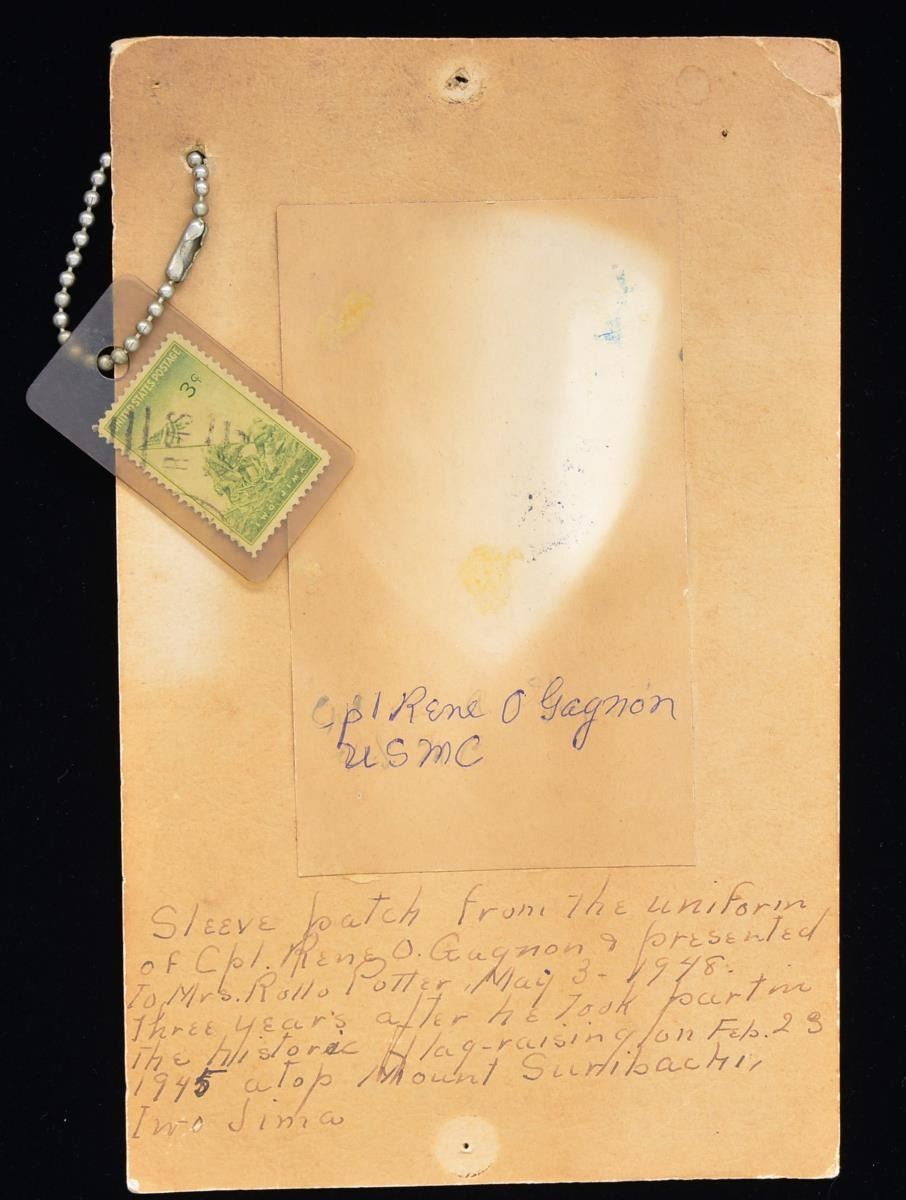 UNITED STATES POSTAGE
3¢
IWO JIMA
Cpl Rene O Gagnon
USMC
Sleeve patch from the uniform
of Cpl. Rene O. Gagnon & presented
to Mrs. Rollo Potter, May 3 - 1948.
three years after he took part in
the historic flag-raising on Feb. 23
1945 atop Mount Suribachi,
Iwo Jima